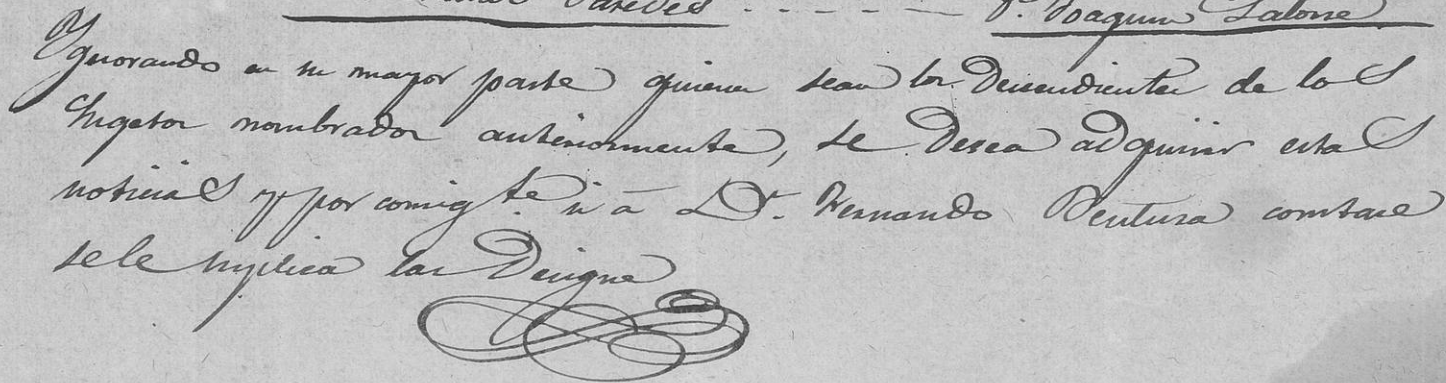 Paredes - - - - - - - Dn. Joaquin Latorre
Ygnorando en su mayor parte quienes sean los Decendientes de los
Sugetos nombrados anteriormente, se Desea adquirir estas
noticias y por consigte. si a Dn. Fernando Ventura constase
se le suplica las Designe